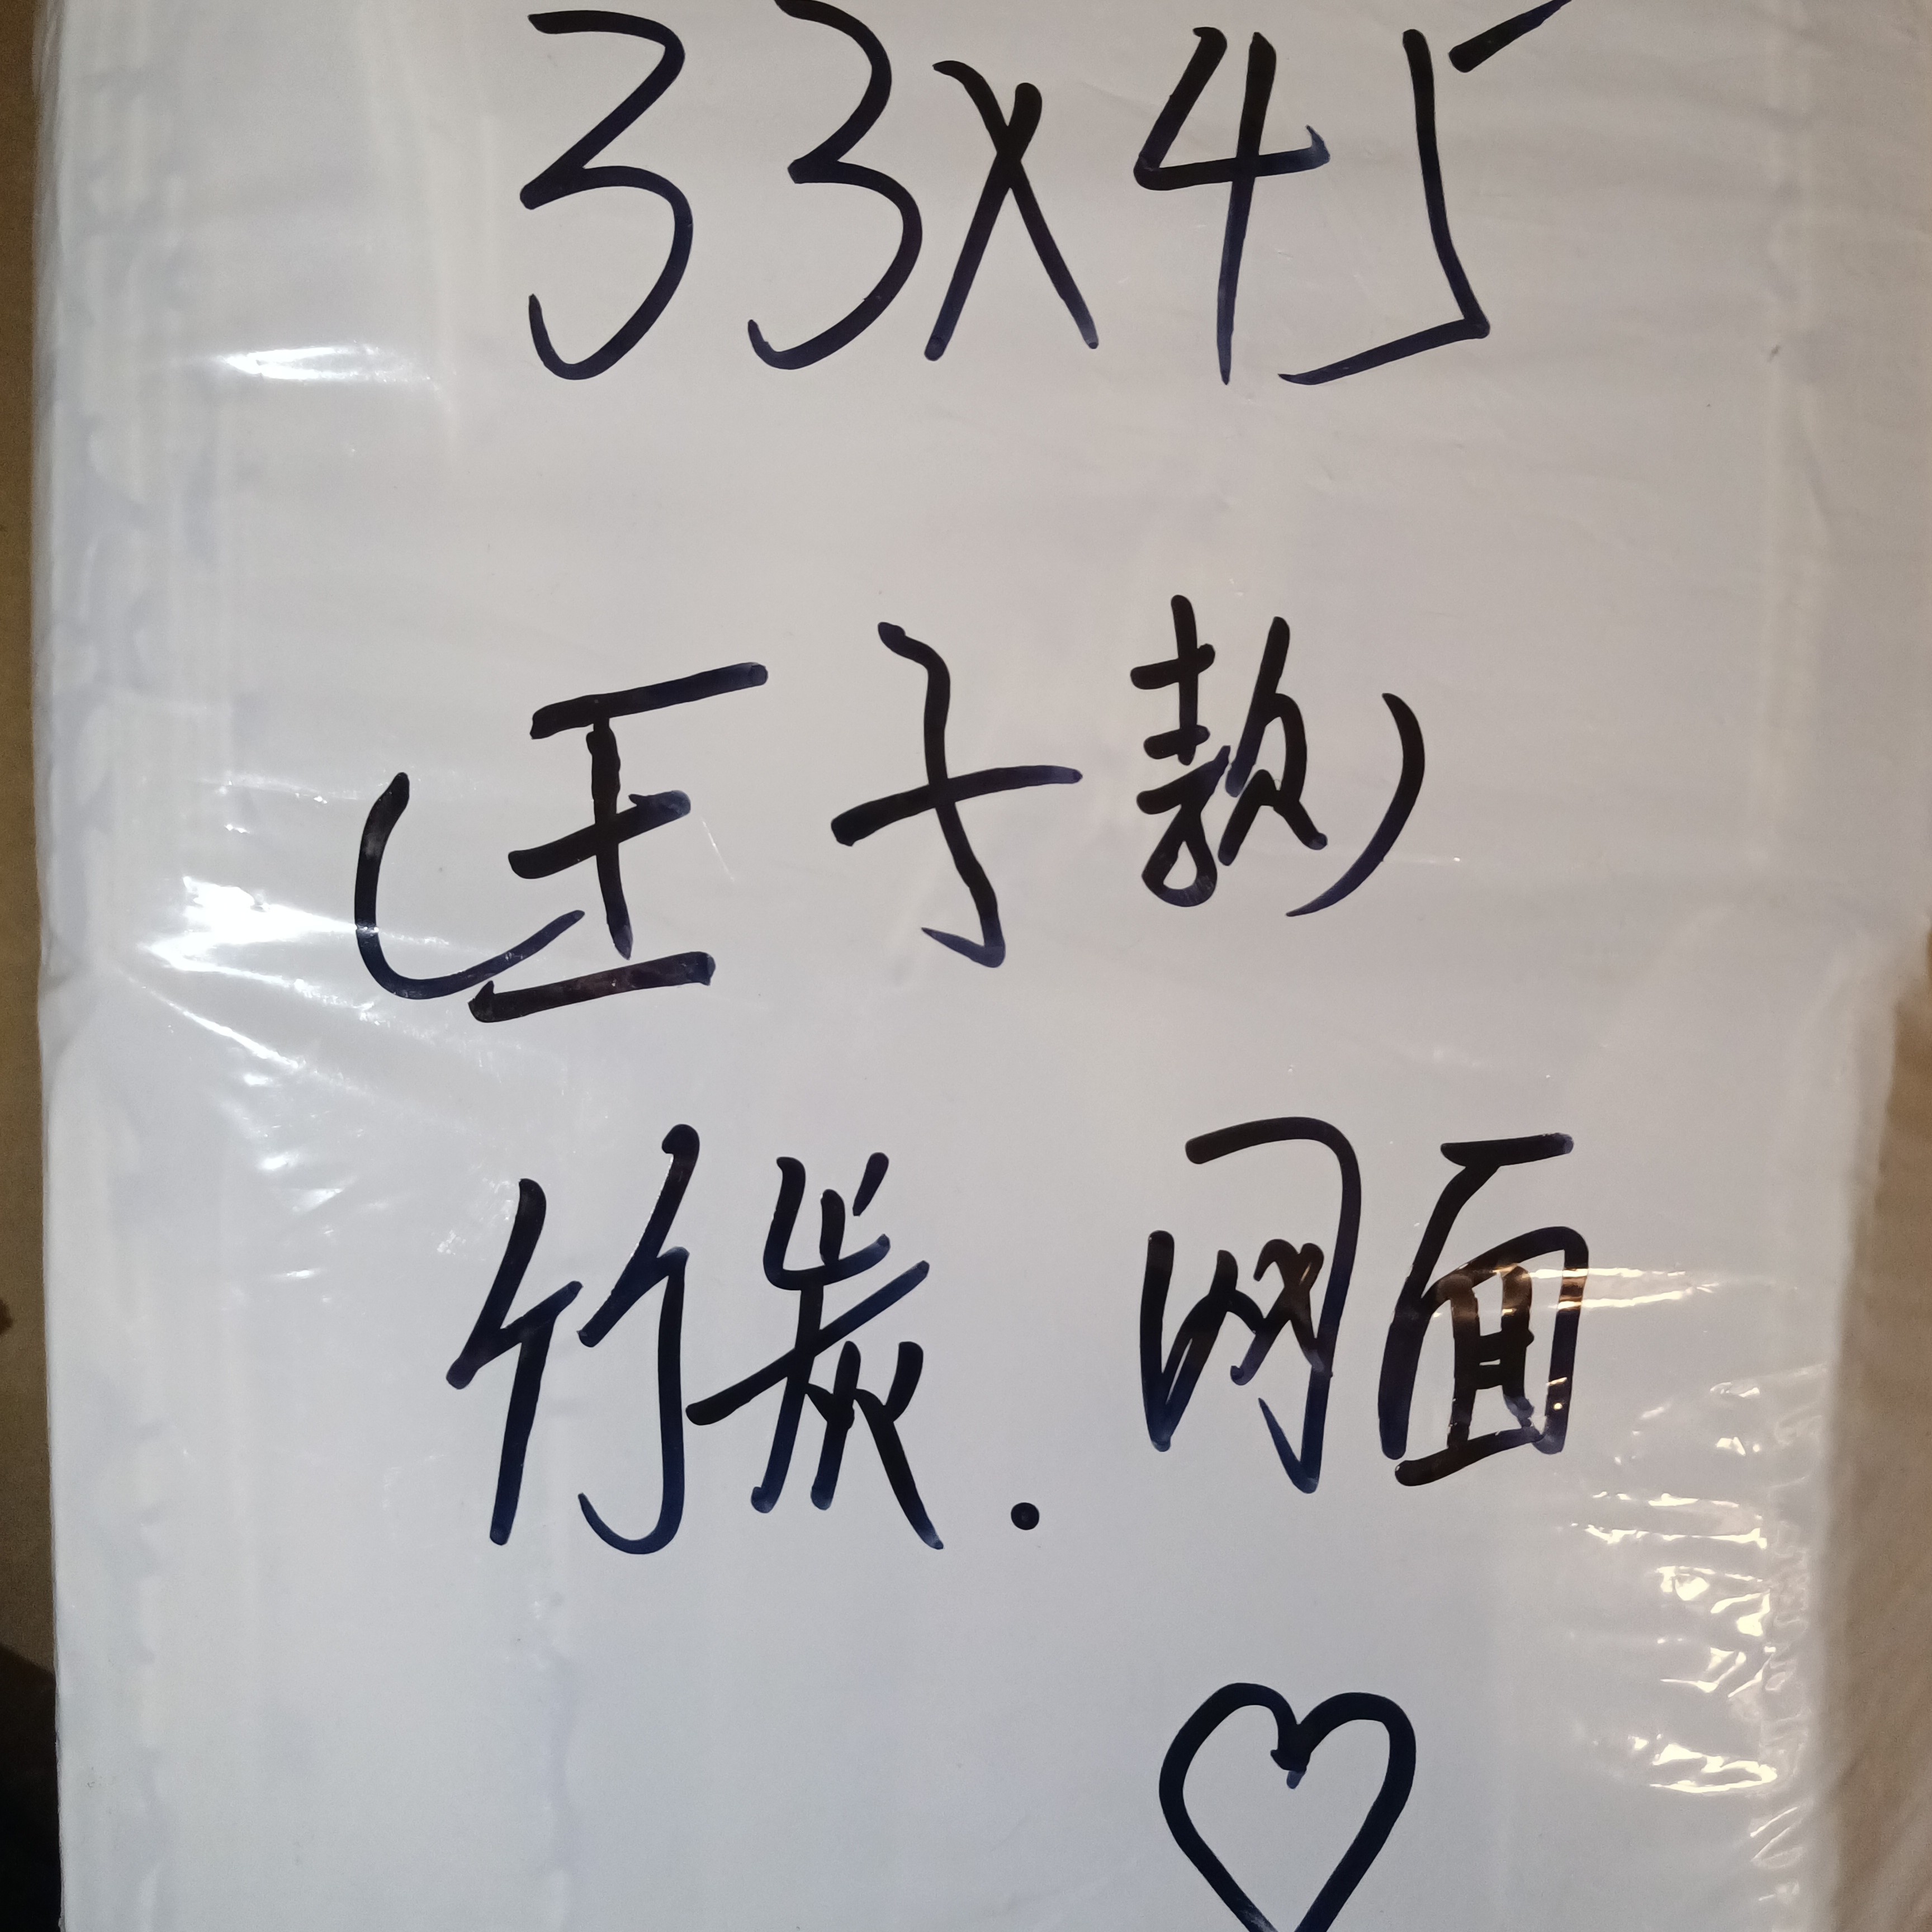 33x45
(王子款)
竹炭.网面